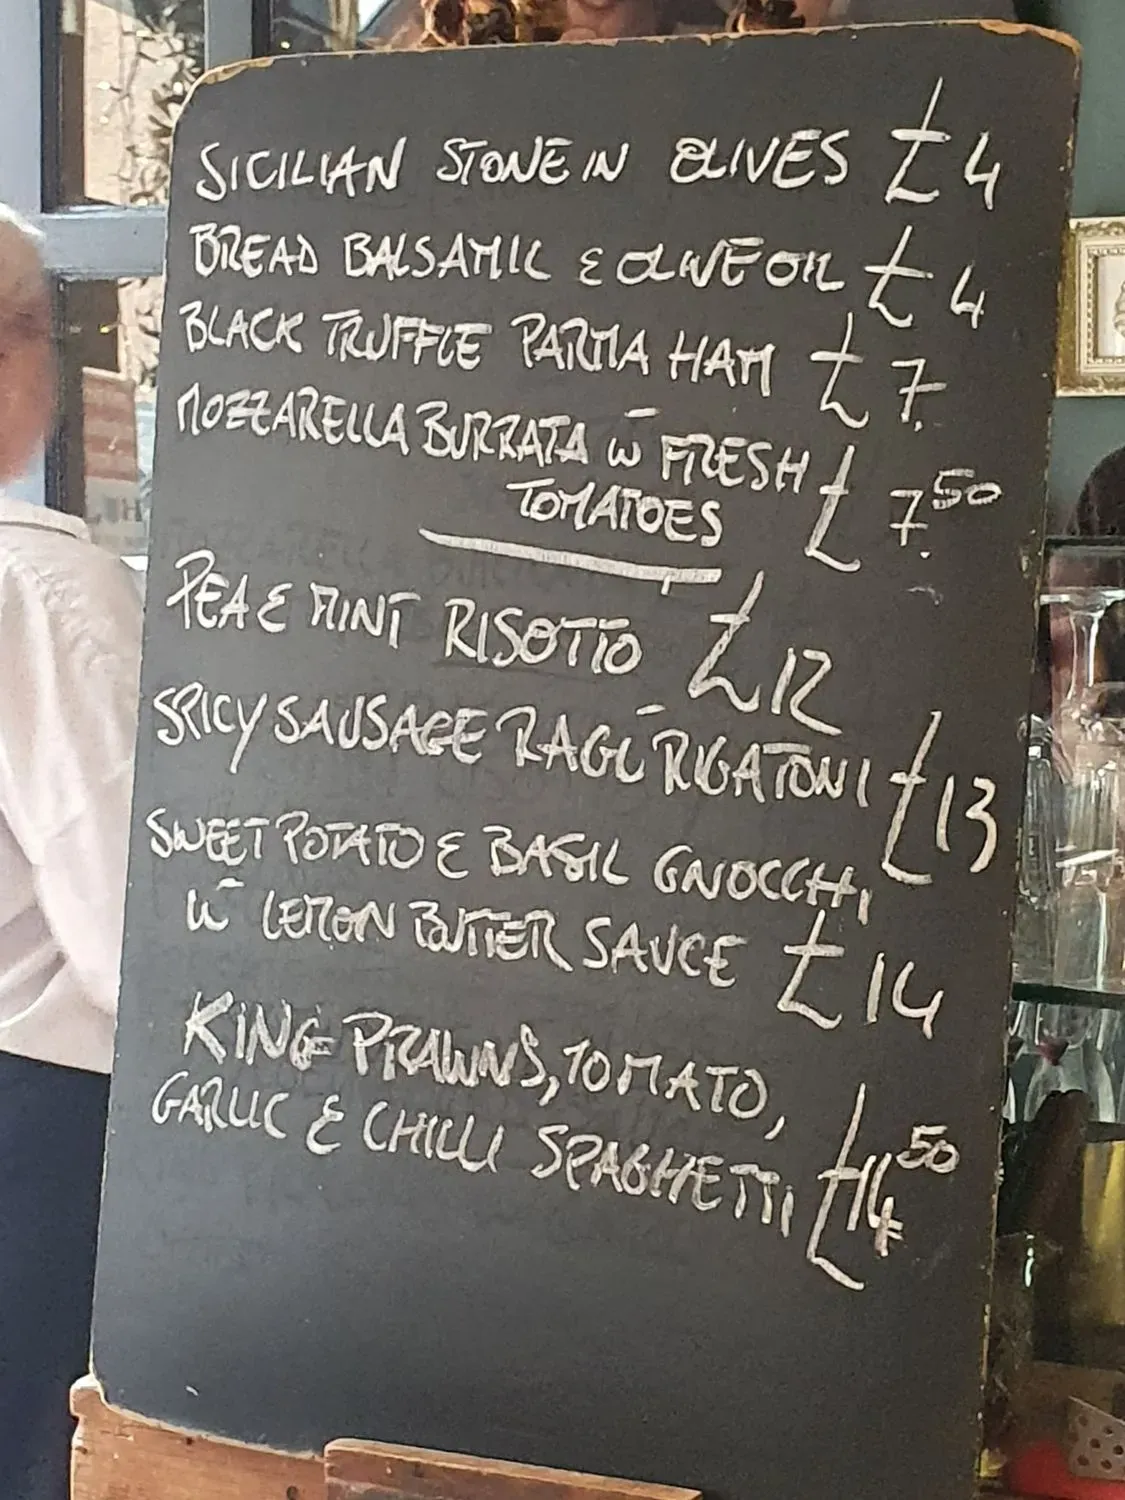 SICILIAN STONE IN OLIVES £4
BREAD BALSAMIC & OLIVE OIL £4
BLACK TRUFFLE PARMA HAM £7.
MOZZARELLA BURRATA W̄ FRESH
TOMATOES £7.50
PEA & MINT RISOTTO £12
SPICY SAUSAGE RAGÚ RIGATONI £13
SWEET POTATO & BASIL GNOCCHI
W̄ LEMON BUTTER SAUCE £14
KING PRAWNS, TOMATO,
GARLIC & CHILLI SPAGHETTI £14.50